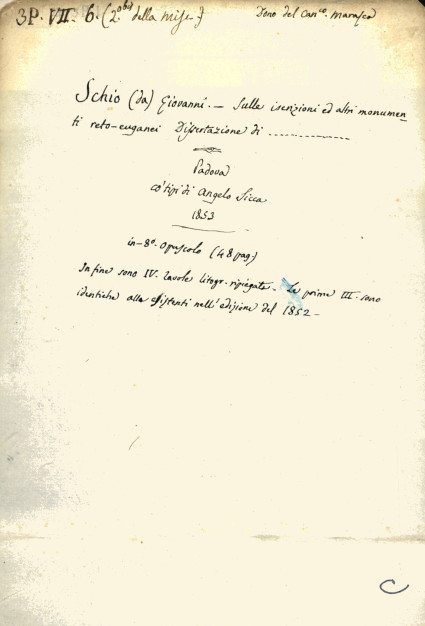 3P. VII. 6. (2.° della Misc.)
Dono del Can.co Marasca
Schio (da) Giovanni. — Sulle iscrizioni ed altri monumen
ti reto-euganei Dissertazione di ..............
Padova
co' tipi di Angelo Sicca
1853
in-8.° opuscolo (48 pag.)
In fine sono IV. tavole litogr. ripiegate. Le prime III. sono
identiche alle esistenti nell'edizione del 1852 —
C